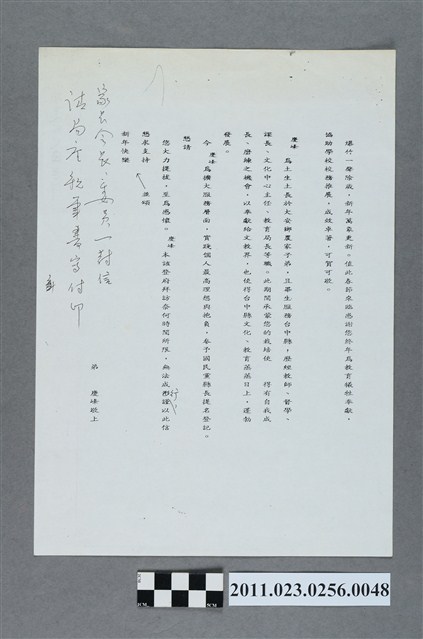 爆竹一聲除歲，新年萬象更新。值此春節來臨感謝您終年為教育犧牲奉獻，
協助學校校務推展，成效卓著，可賀可敬。
慶峰　為土生土長於大安鄉農家子弟，且畢生服務台中縣，歷經教師、督學、
課長、文化中心主任、教育局長等職。此期間承蒙您的栽培使　得有自我成
長、磨練之機會，以奉獻給文教界，也使得台中縣文化、教育蒸蒸日上，運動
發展。
今　慶峰為擴大服務層面，實踐個人最高理想與抱負，參予國民黨縣長提名登記。
懇請
您大力提拔，至為感懷。慶峰本該登府拜訪奈何時間所限，無法成行謹以此信
懇求支持　並頌
新年快樂
弟　慶峰敬上
家長會長、委員一封信
請
付印
CM
2011.023.0256.0048